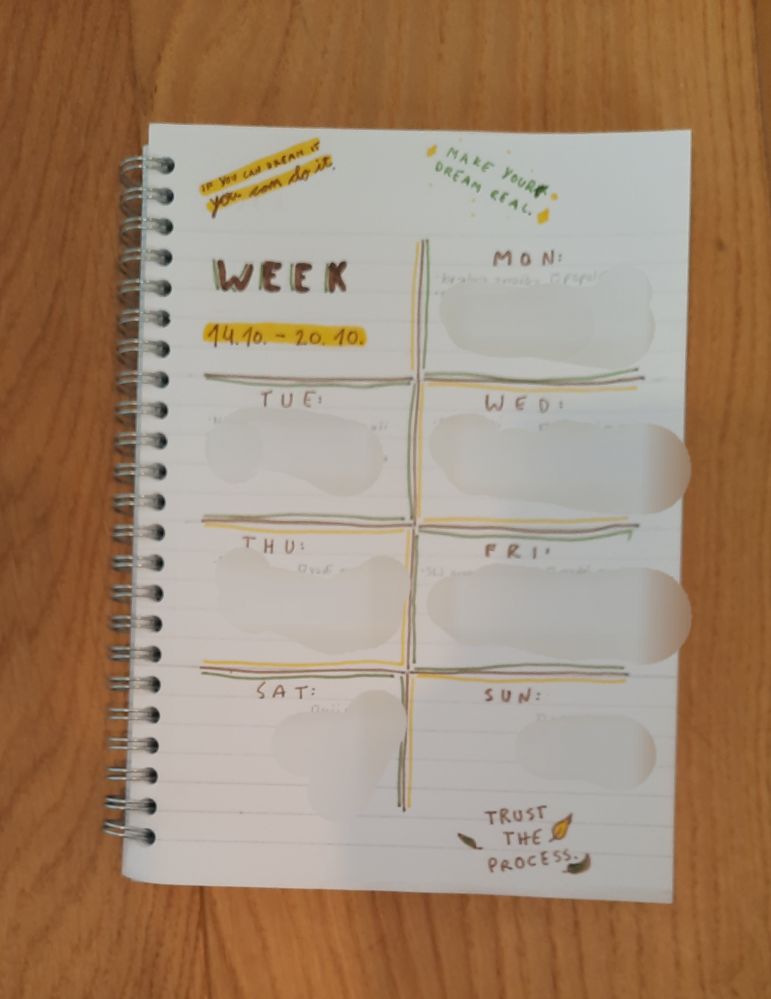 IF YOU CAN DREAM IT
you can do it.
MAKE YOUR
DREAM REAL.
WEEK
14.10. - 20.10.
MON:
TUE:
WED:
THU:
FRI:
SAT:
SUN:
TRUST
THE
PROCESS.